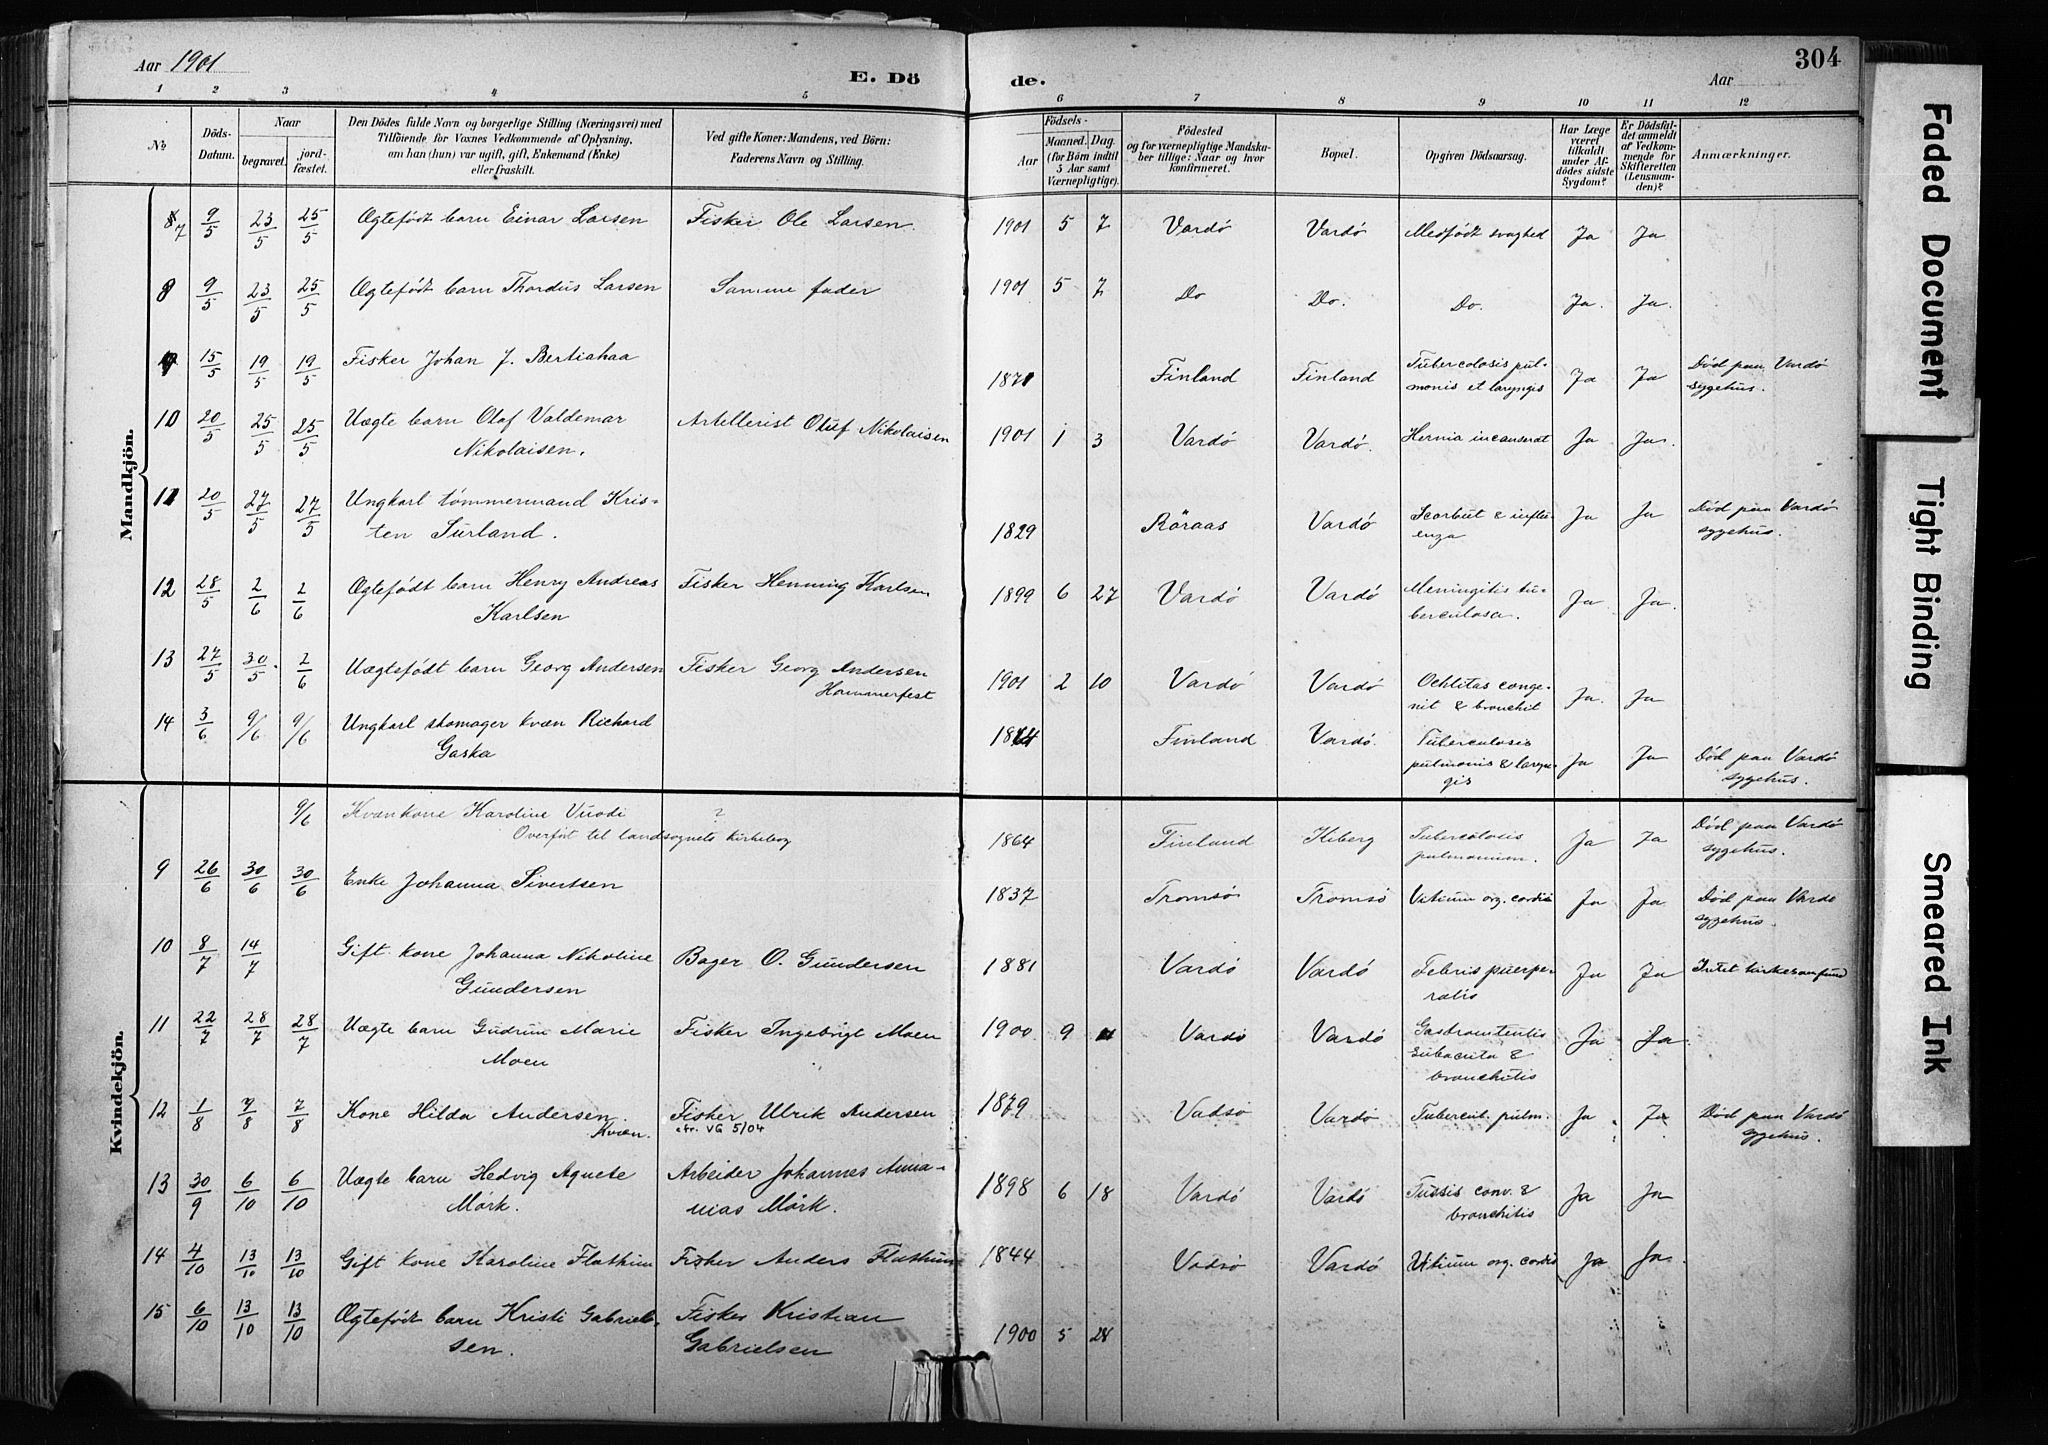 Aar 1901
E. Dö
de.
Aar
304
1 2 3 4 5 6 7 8 9 10 11 12
№
Döds-Datum.
Naar
begravet.
jordfæstet.
Den Dödes fulde Navn og borgerlige Stilling (Næringsvei) med
Tilföiende for Voxnes Vedkommende af Oplysning,
om han (hun) var ugift, gift, Enkemand (Enke)
eller fraskilt.
Ved gifte Koner: Mandens, ved Börn:
Faderens Navn og Stilling.
Födsels-
Aar
Maaned. Dag.
(for Börn indtil
5 Aar samt
Værnepligtige).
Födested
og for værnepligtige Mandskaber tillige: Naar og hvor
konfirmeret.
Bopæl.
Opgiven Dödsaarsag.
Har Læge
været
tilkaldt
under Afdödes sidste
Sygdom?
Er Dödsfaldet anmeldt
af Vedkommende for
Skifteretten
(Lensmanden)?
Anmærkninger.
Mandkjön.
7 9/5 23/5 25/5 Ægtefödt barn Einar Larsen Fisker Ole Larsen. 1901 5 7 Vardö Vardö Medfödt svaghed Ja Ja
8 9/5 23/5 25/5 Ægtefödt barn Thordus Larsen Samme fader 1901 5 7 Do Do. Do. Ja. Ja.
9 15/5 19/5 19/5 Fisker Johan J. Bertiahaa 1871 Finland Finland Tubercolosis pulmonis et laryngis Ja Ja Död paa Vardö sygehus.
10 20/5 25/5 25/5 Uægte barn Olaf Valdemar Artellerist Oluf Nikolaisen 1901 1 3 Vardö Vardö. Hernia incanserat Ja Ja.
Nikolaisen.
11 20/5 27/5 27/5 Ungkarl tömmermand Kris-
ten Surland. 1829 Röraas Vardö Scorbut & influenza Ja Ja Död paa Vardö sygehus.
12 28/5 2/6 2/6 Ægtefödt barn Henry Andreas Fisker Henning Karlsen 1899 6 27 Vardö Vardö Meningitis tuberculosa. Ja Ja.
Karlsen
13 27/5 30/5 2/6 Uægtefödt barn Georg Andersen Fisker Georg Andersen
Hammerfest 1901 2 10 Vardö Vardö congenit & bronchit Ja. Ja
14 3/6 9/6 9/6 Ungkarl skomager kvæn Richard
Gaska 1874 Finland Vardö. Tuberculosis pulmonis & laryngis Ja Ja Död paa Vardö sygehus.
Kvindekjön.
9/6 Kvænkone Karoline Vuodi ?
Overfört til landsognets kirkebog 1864 Finland Kiberg Tubercolosis pulmonum. Ja Ja Död paa Vardö sygehus.
9 26/6 30/6 30/6 Enke Johanna Sivertsen 1837 Tromsö Tromsö Vitium org. cordis Ja Ja Död paa Vardö sygehus.
10 8/7 14/7 Gift kone Johanna Nikoline Bager O. Gundersen 1881 Vardö Vardö Febris puerperalis Ja Ja Intet kirkesamfund
Gundersen
11 22/7 28/7 28/7 Uægte barn Gudrun Marie Fisker Ingebrigt Moen 1900 9 Vardö Vardö & bronchitis Ja Ja
Moen
12 1/8 7/8 7/8 Kone Hilda Andersen. Fisker Ulrik Andersen 1879 Vadsö Vardö Tubercul. pulm. Ja Ja Död paa Vardö sygehus.
Kvæn. VG 5/04
13 30/9 6/10 6/10 Uægte barn Hedvig Agnete Arbeider Johannes Anna-
Mörk. nias Mörk. 1898 6 18 Vardö Vardö Tussis conv. & bronchitis Ja Ja
14 4/10 13/10 13/10 Gift kone Karoline Flathun Fisker Anders Flathun 1844 Vadsö Vardö Vitium org. cordis Ja Ja
15 6/10 13/10 13/10 Ægtefödt barn Kristi Gabriel-
sen. Fisker Kristian
Gabrielsen 1900 5 28
Faded Document
Tight Binding
Smeared Ink